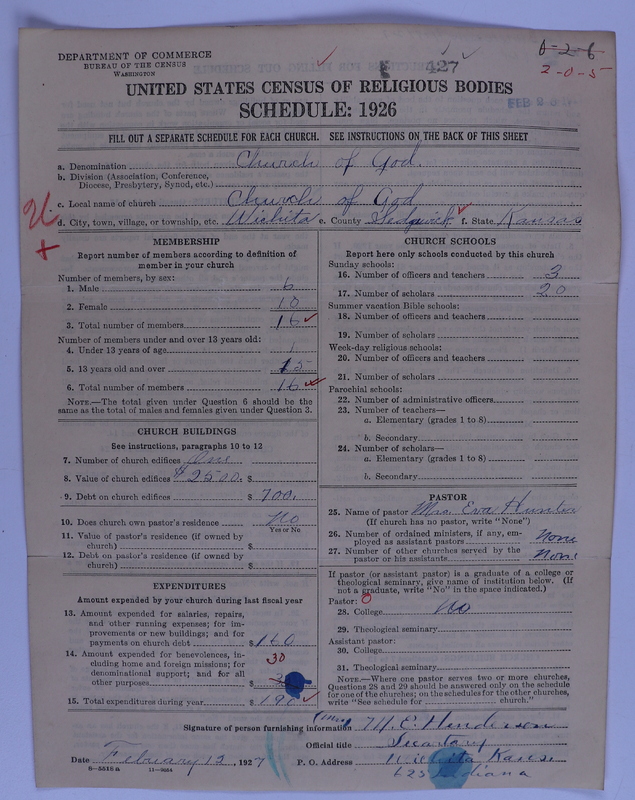 DEPARTMENT OF COMMERCE
BUREAU OF THE CENSUS
WASHINGTON
427
6-2-6
2-0-5
UNITED STATES CENSUS OF RELIGIOUS BODIES
SCHEDULE: 1926
FILL OUT A SEPARATE SCHEDULE FOR EACH CHURCH. SEE INSTRUCTIONS ON THE BACK OF THIS SHEET
a. Denomination Church of God.
b. Division (Association, Conference,
Diocese, Presbytery, Synod, etc.)
c. Local name of church Church of God
d. City, town, village, or township, etc. Wichita e. County Sedgwick f. State Kansas
MEMBERSHIP
Report number of members according to definition of
member in your church
Number of members, by sex:
1. Male 6
2. Female 10
3. Total number of members 16
Number of members under and over 13 years old:
4. Under 13 years of age 1
5. 13 years old and over 15
6. Total number of members 16
NOTE.—The total given under Question 6 should be the
same as the total of males and females given under Question 3.
CHURCH BUILDINGS
See instructions, paragraphs 10 to 12
7. Number of church edifices One
8. Value of church edifices $2500. $
9. Debt on church edifices $ 700.
10. Does church own pastor's residence No
Yes or No
11. Value of pastor's residence (if owned by
church) $
12. Debt on pastor's residence (if owned by
church) $
EXPENDITURES
Amount expended by your church during last fiscal year
13. Amount expended for salaries, repairs,
and other running expenses; for im-
provements or new buildings; and for
payments on church debt $ 160
14. Amount expended for benevolences, in-
cluding home and foreign missions; for
denominational support; and for all
other purposes $ 30
15. Total expenditures during year $ 190
CHURCH SCHOOLS
Report here only schools conducted by this church
Sunday schools:
16. Number of officers and teachers 3
17. Number of scholars 20
Summer vacation Bible schools:
18. Number of officers and teachers
19. Number of scholars
Week-day religious schools:
20. Number of officers and teachers
21. Number of scholars
Parochial schools:
22. Number of administrative officers
23. Number of teachers—
a. Elementary (grades 1 to 8)
b. Secondary
24. Number of scholars—
a. Elementary (grades 1 to 8)
b. Secondary
PASTOR
25. Name of pastor Mrs. Eva Hunter
(If church has no pastor, write "None")
26. Number of ordained ministers, if any, em-
ployed as assistant pastors None
27. Number of other churches served by the
pastor or his assistants None
If pastor (or assistant pastor) is a graduate of a college or
theological seminary, give name of institution below. (If
not a graduate, write "No" in the space indicated.)
Pastor: 0
28. College No
29. Theological seminary
Assistant pastor:
30. College
31. Theological seminary
NOTE.—Where one pastor serves two or more churches,
Questions 28 and 29 should be answered only on the schedule
for one of the churches; on the schedules for the other churches,
write "See schedule for church."
Signature of person furnishing information (Mrs) M. E. Henderson
Official title Secretary
Date February 12, 1927 P. O. Address Wichita Kans.
8-5518a 11-9664 625 Indiana